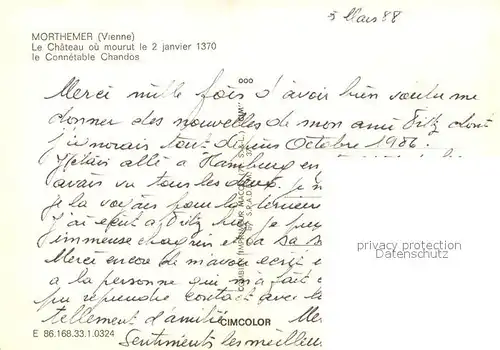 5 Mars 88
MORTHEMER (Vienne)
Le Château où mourut le 2 janvier 1370
le Connétable Chandos
Merci mille fois d'avoir bien voulu me
donner des nouvelles de mon ami Fritz dont
j'ignorais tout depuis Octobre 1986.
J'étais allé à Hamburg en
avais vu tous les deux. Je
je la voyais pour la dernière
J'ai écrit à Fritz
immense chagrin et
Merci encore de m'avoir écrit
a la personne qui m'a fait
pu reprendre contact avec
tellement d'amitié Me
Sentiments les meilleu
CIMCOLOR
E 86.168.33.1.0324
privacy protection
www.oldthing.de